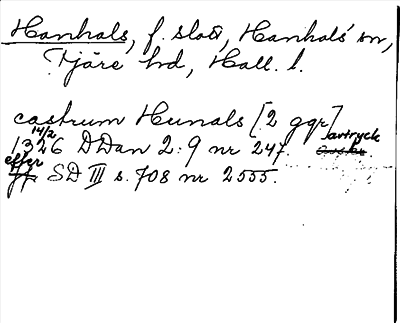 Hanhals, f. slott, Hanhals sn,
Fjäre hd, Hall. l.
castrum Hunals [2 ggr]
14/2 1326 DDan 2:9 nr 247. avtryck
efter SD III s. 708 nr 2555.